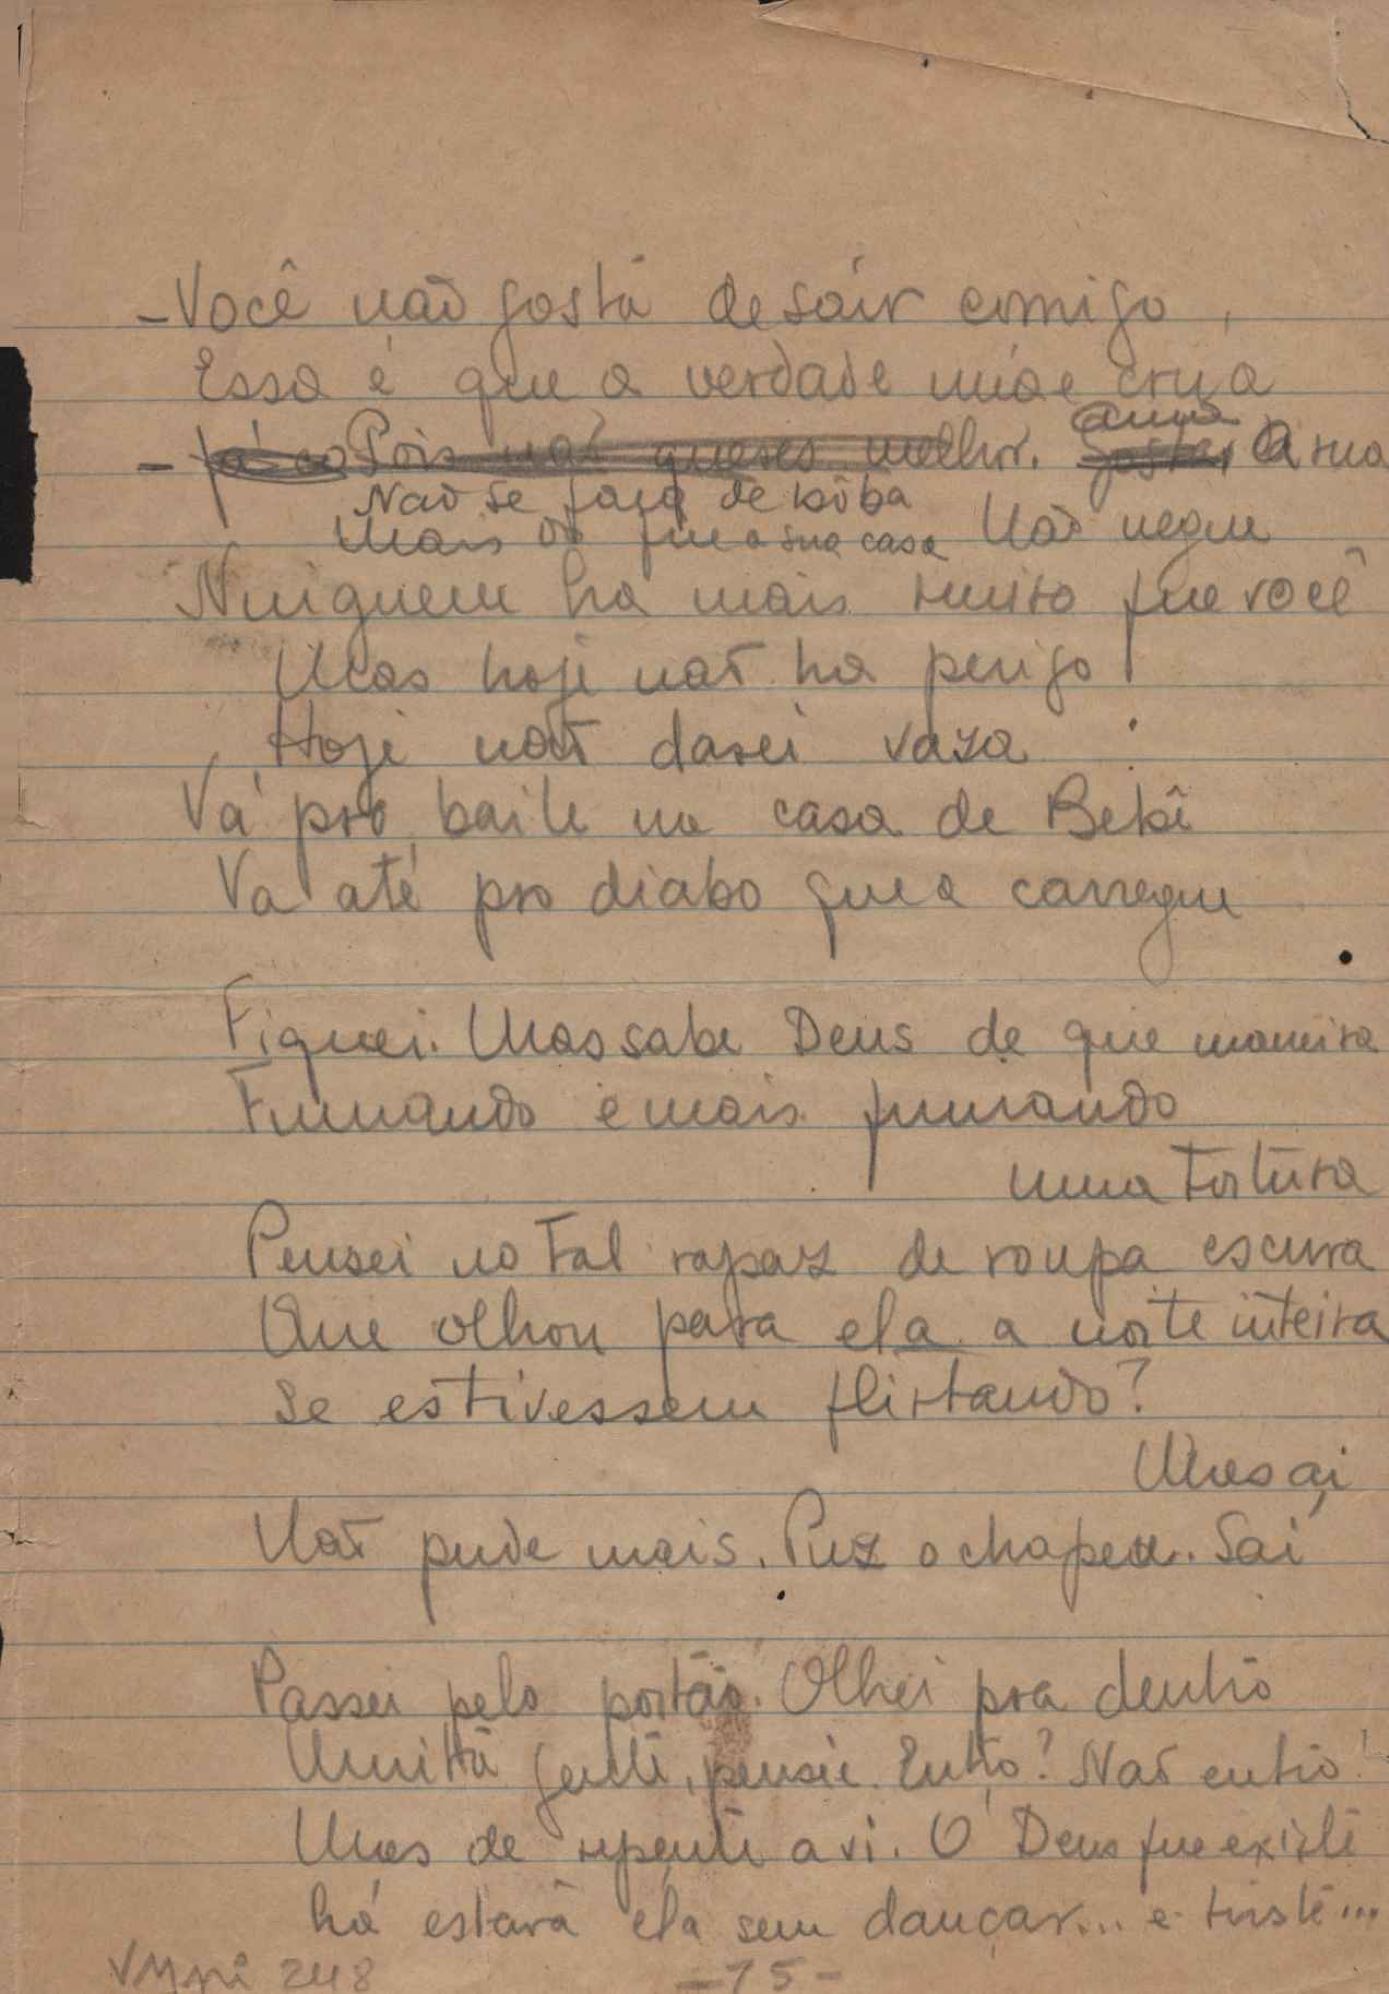 - Você não gosta de sair comigo,
Essa é que a verdade núa e crua
- Pois não queres melhor. ama A rua
Não se faça de bôba
Mais do que a sua casa Não negue
Ninguem ha mais que você
Mas hoje não ha perigo!
Hoje não darei vaza
Vá pro baile na casa de Bebê
Va até pro diabo que a carregue
Fiquei. Mas sabe Deus de que maneira
Fumando e mais fumando
uma tortura
Pensei no tal rapaz de roupa escura
Que olhou para ela a noite inteira
Se estivessem flirtando?
Mas ai
Não pude mais. Puz o chapeu. Sai
Passei pelo portão. Olhei pra dentro
Muita gente, pensei. Entro? Não entro!
Mas de repente a vi. O Deus que existe
há estava ela sem dançar... e triste...
248
- 15 -